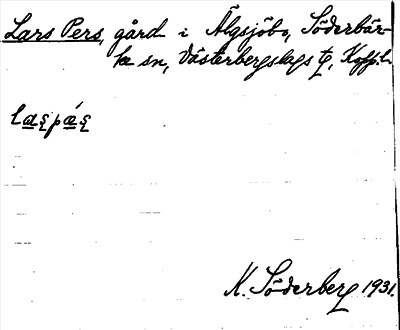 Lars Pers, gård i Älgsjöbo, Söderbär-
ke sn, Västerbergslags tg, Koppb.
K. Söderberg 1931.